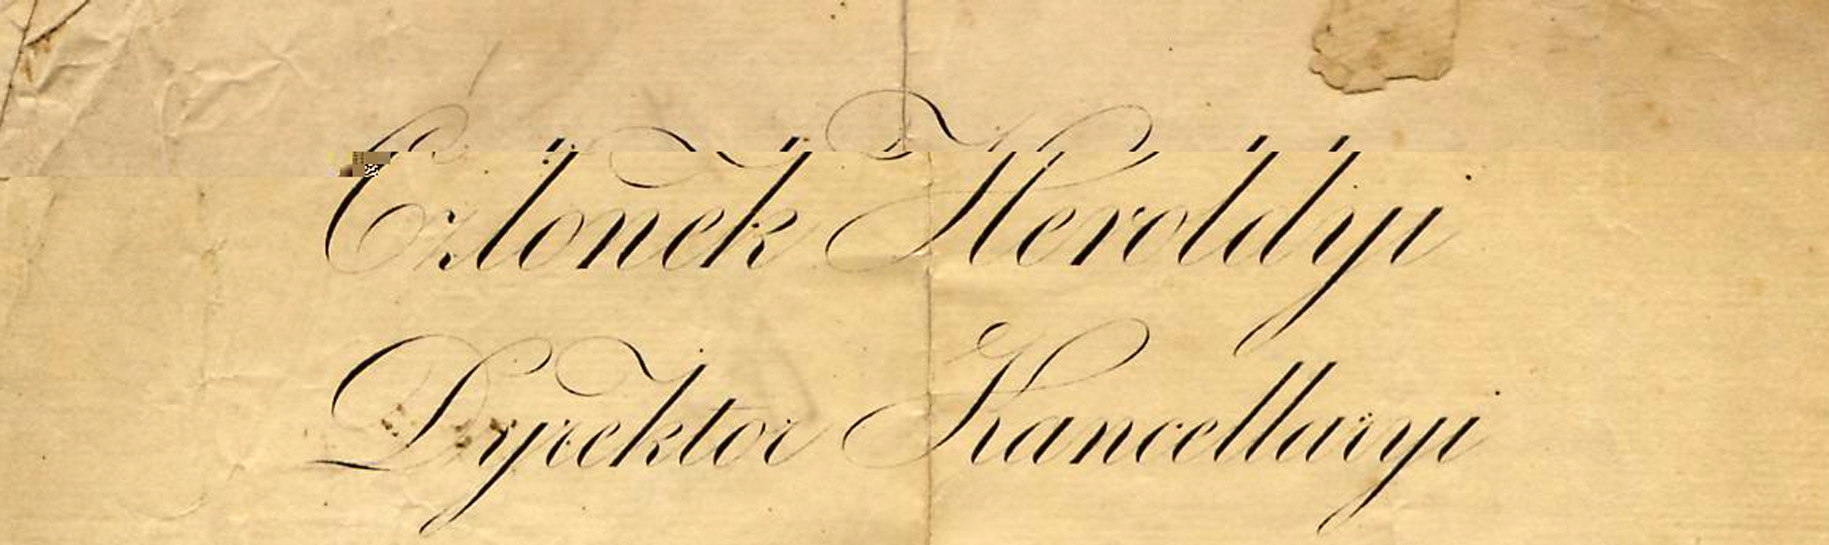 Członek Heroldyi
Dyrektor Kancellaryi